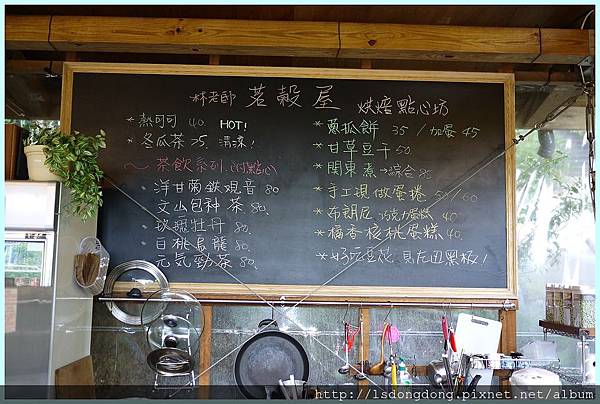 林老師 茗穀屋 烘焙點心坊
*熱可可 40. HOT!
*冬瓜茶 25. 清涼!
~茶飲系列 (附點心)
·洋甘菊鐵觀音 80
·文山包種茶 80.
·玫瑰牡丹 80.
·白桃烏龍 80.
·元気勁茶 80.
*蔥抓餅 35 / 加蛋 45
*甘草豆干 50.
*關東煮→綜合 80
*手工現做蛋捲 50/100
*布朗尼 巧克力蛋糕 40.
*橘香核桃蛋糕 40.
*好吃豆花 見左迎黑板!
http://lsdongdong.pixnet.net/album